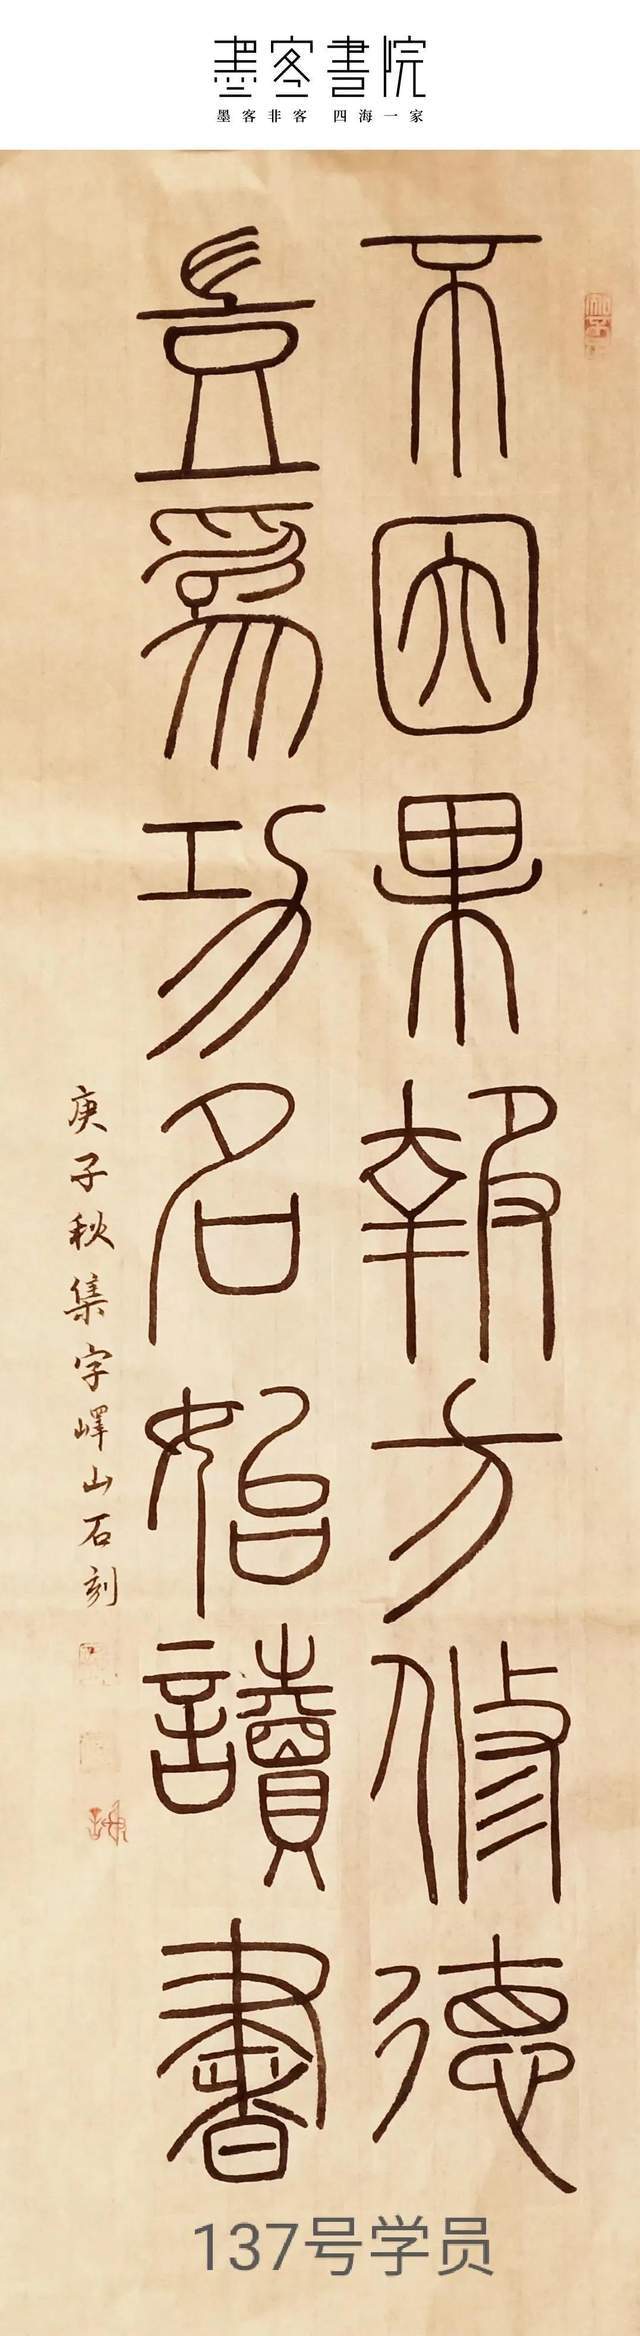 墨客書院
墨客非客 四海一家
不因果報方修德
豈為功名始讀書
庚子秋集字嶧山石刻
137号学员